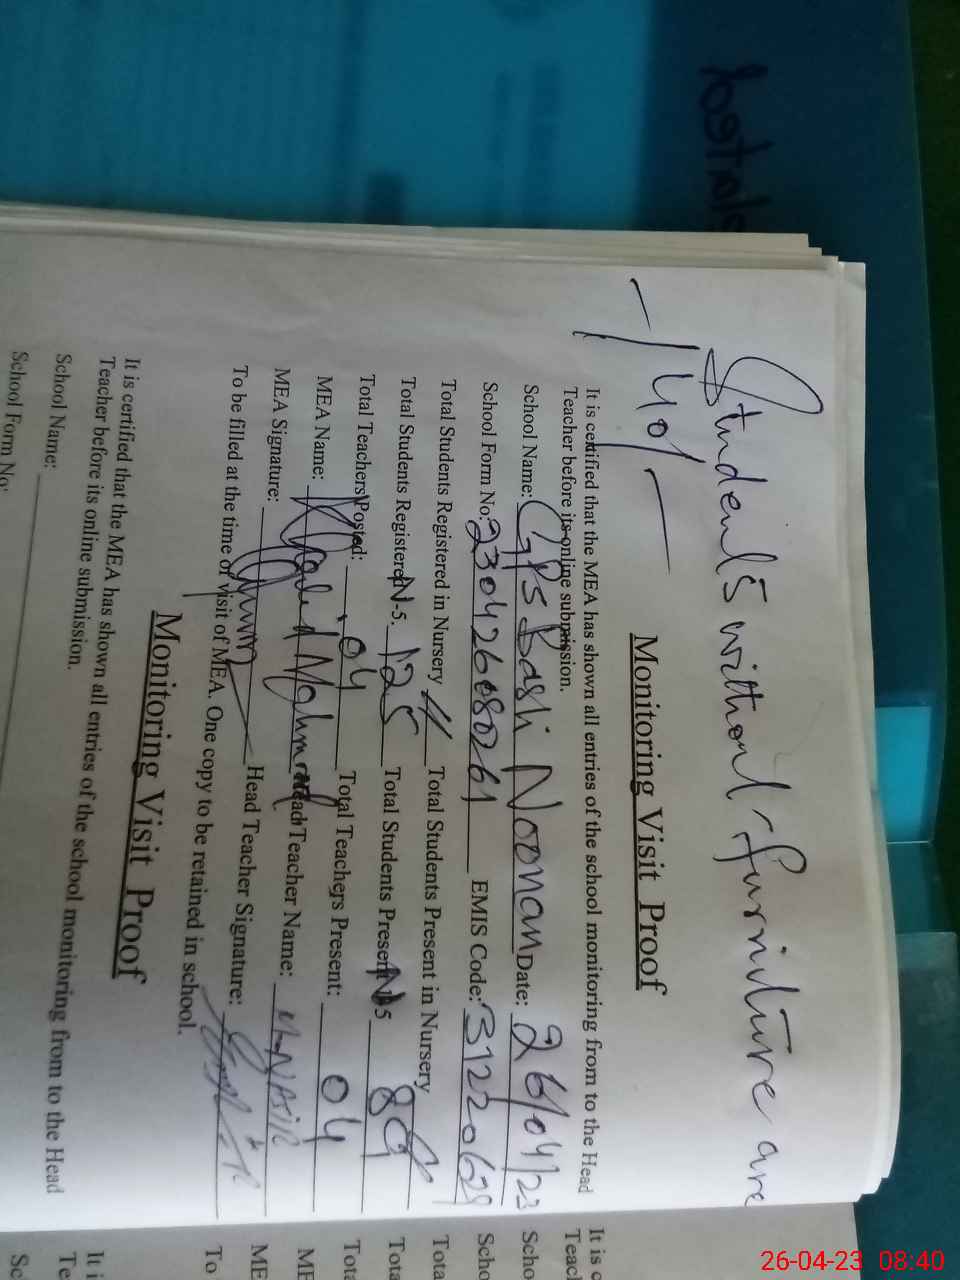 Students without furniture are
- / 40/ -
Monitoring Visit Proof
It is certified that the MEA has shown all entries of the school monitoring from to the Head
Teacher before its online submission.
School Name: GPS Basti Nooman Date: 26/04/23
School Form No: 230426080261 EMIS Code:
Total Students Registered in Nursery 11 Total Students Present in Nursery
Total Students Registered N-5. 125 Total Students Present N-5
Total Teachers Posted: 04 Total Teachers Present: 04
MEA Name: Khalid Mahmood Head Teacher Name: M-NASIR
MEA Signature: Head Teacher Signature:
To be filled at the time of visit of MEA. One copy to be retained in school.
Monitoring Visit Proof
It is certified that the MEA has shown all entries of the school monitoring from to the Head
Teacher before its online submission.
School Name:
School Form No:
It is
Teacl
Scho
Scho
Tota
Tota
Tota
ME
ME
To
It i
Te
Sc
26-04-23 08:40